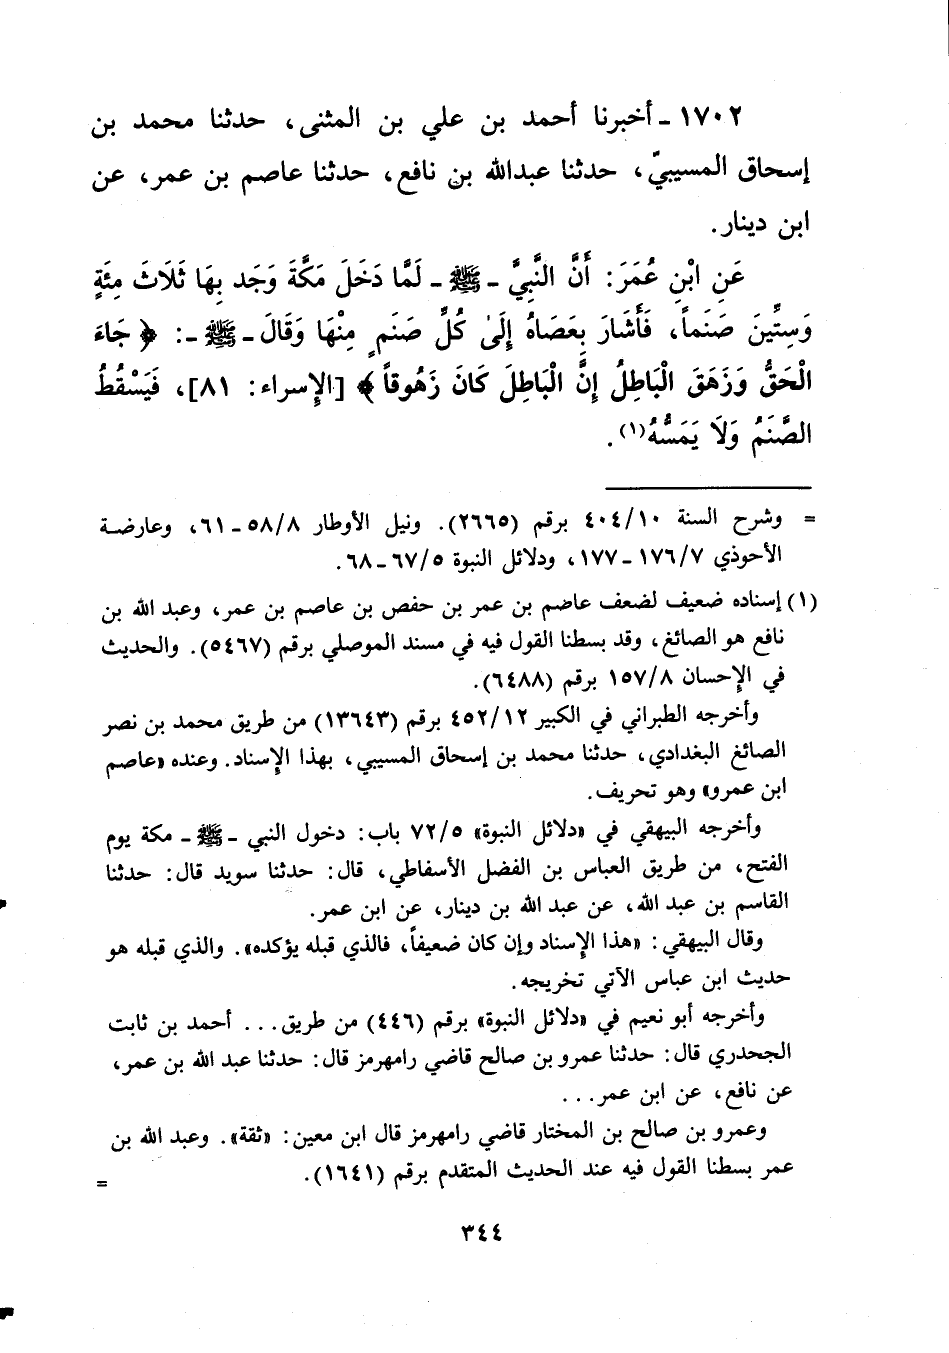 ١٧٠٢ - أخبرنا أحمد بن علي بن المثنى، حدثنا محمد بن
إسحاق المسيبيّ، حدثنا عبدالله بن نافع، حدثنا عاصم بن عمر، عن
ابن دينار.
عَنِ ابْنِ عُمَرَ: أَنَّ النَّبِيَّ - ﷺ - لَمَّا دَخَلَ مَكَّةَ وَجَد بِهَا ثَلَاثَ مِئَةٍ
وَسِتِّينَ صَنَماً، فَأَشَارَ بِعَصَاهُ إِلَىٰ كُلِّ صَنَمٍ مِنْهَا وَقَالَ - ﷺ -: ﴿ جَاءَ
الْحَقُّ وَزَهَقَ الْبَاطِلُ إِنَّ الْبَاطِلَ كَانَ زَهُوقاً ﴾ [الإسراء: ٨١]، فَيَسْقُطُ
الصَّنَمُ وَلَا يَمَسُّهُ(١).
= وشرح السنة ٤٠٤/١٠ برقم (٢٦٦٥). ونيل الأوطار ٥٨/٨ - ٦١، وعارضة
الأحوذي ١٧٦/٧ - ١٧٧، ودلائل النبوة ٦٧/٥ - ٦٨.
(١) إسناده ضعيف لضعف عاصم بن عمر بن حفص بن عاصم بن عمر، وعبد الله بن
نافع هو الصائغ، وقد بسطنا القول فيه في مسند الموصلي برقم (٥٤٦٧). والحديث
في الإحسان ١٥٧/٨ برقم (٦٤٨٨).
وأخرجه الطبراني في الكبير ٤٥٢/١٢ برقم (١٣٦٤٣) من طريق محمد بن نصر
الصائغ البغدادي، حدثنا محمد بن إسحاق المسيبي، بهذا الإسناد. وعنده «عاصم
ابن عمرو» وهو تحريف.
وأخرجه البيهقي في «دلائل النبوة» ٧٢/٥ باب: دخول النبي - ﷺ - مكة يوم
الفتح، من طريق العباس بن الفضل الأسفاطي، قال: حدثنا سويد قال: حدثنا
القاسم بن عبد الله، عن عبد الله بن دينار، عن ابن عمر.
وقال البيهقي: «هذا الإسناد وإن كان ضعيفاً، فالذي قبله يؤكده». والذي قبله هو
حديث ابن عباس الآتي تخريجه.
وأخرجه أبو نعيم في «دلائل النبوة» برقم (٤٤٦) من طريق... أحمد بن ثابت
الجحدري قال: حدثنا عمرو بن صالح قاضي رامهرمز قال: حدثنا عبد الله بن عمر،
عن نافع، عن ابن عمر...
وعمرو بن صالح بن المختار قاضي رامهرمز قال ابن معين: «ثقة». وعبد الله بن
عمر بسطنا القول فيه عند الحديث المتقدم برقم (١٦٤١). =
٣٤٤